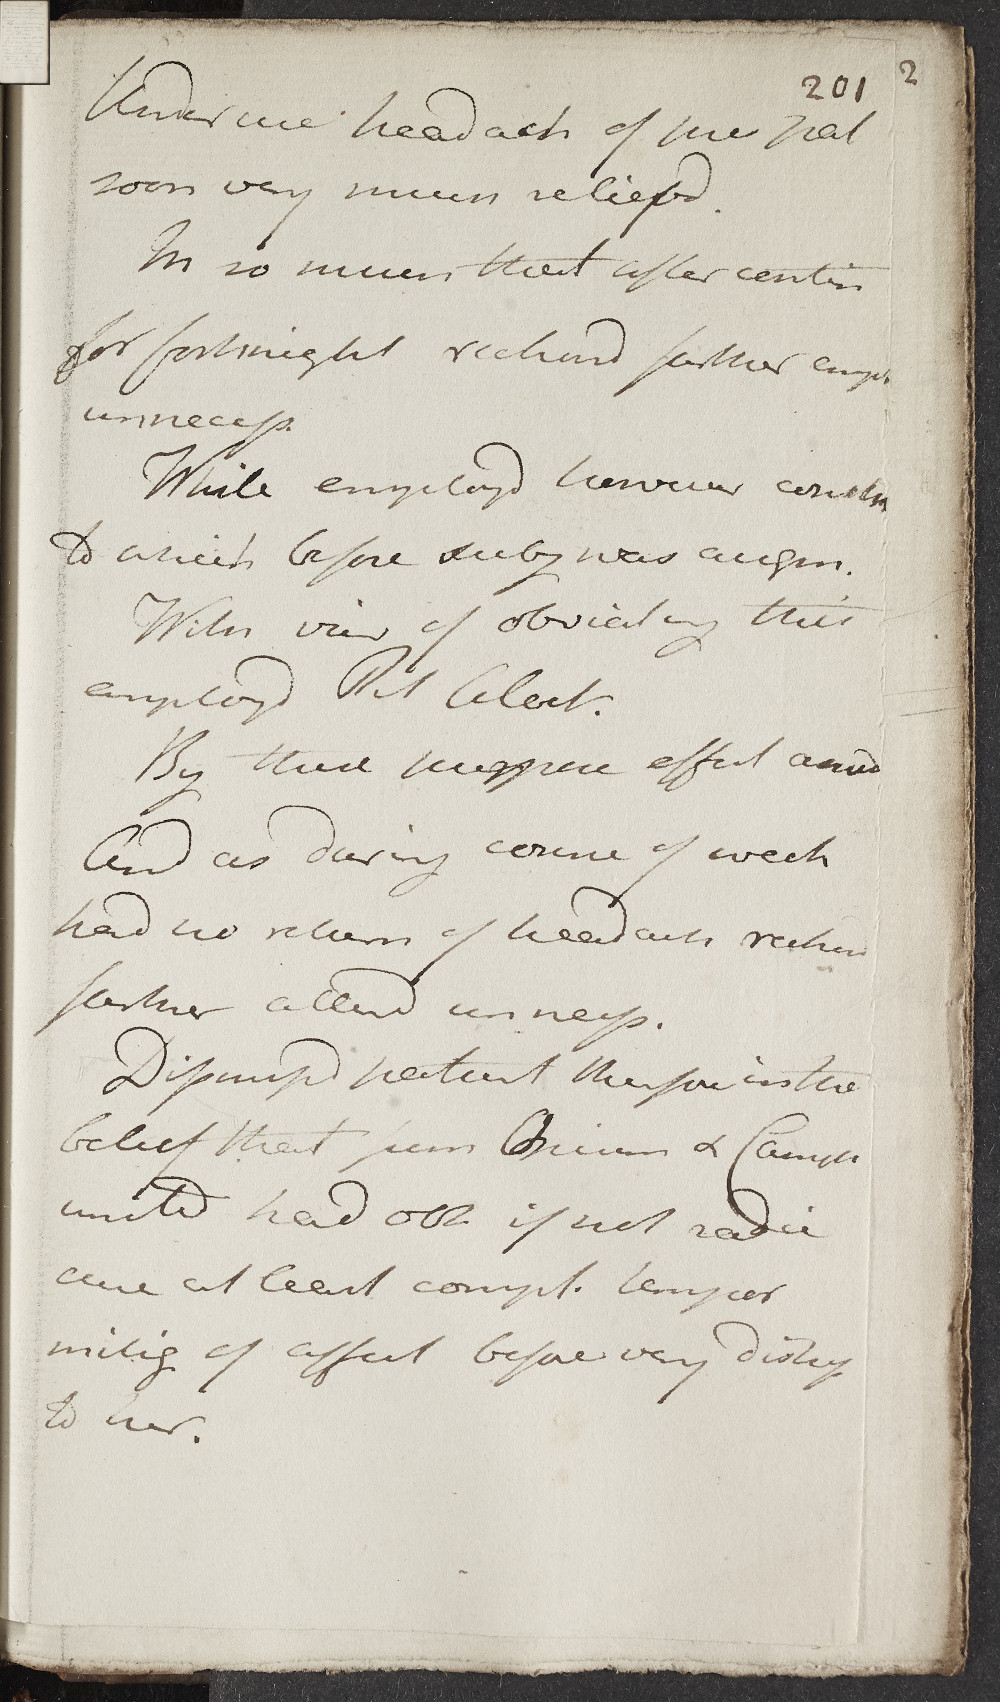 201 2
Under use headach of pre pat
soon very much reliefd.
In so much that after contin
for fortnight reckond farther empl.
unnecess.
While employd however
to which before subj was augm.
With view of obviating this
employd Pil Aloet.
By these effect
And as during course of week
had no return of headach reckon
farther attend unness.
Dismissd patient therfor in the
belief that &
united had obt if not radic
cure at least compt. temper
mitig of affect before very
to her.